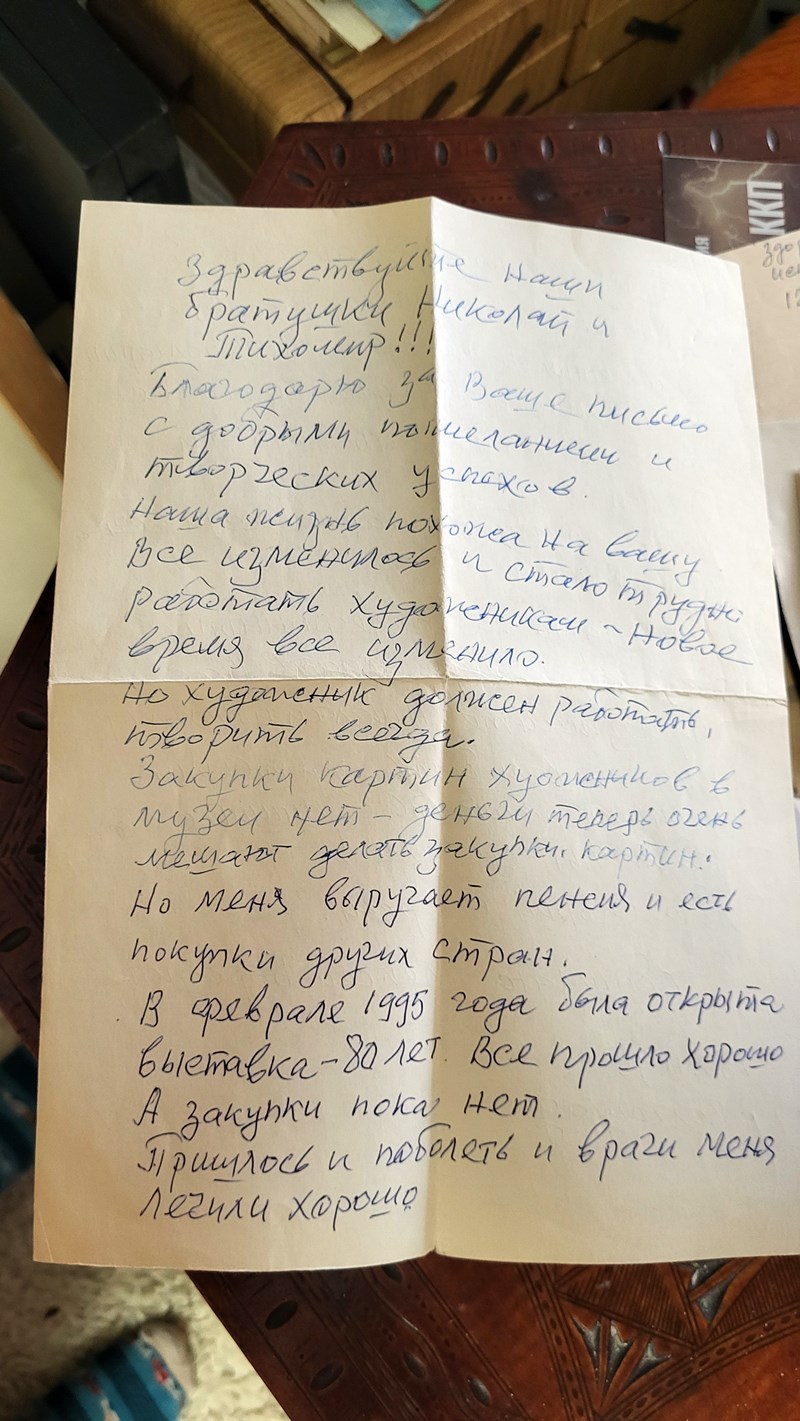 Здравствуйте наши
братушки Николай и
Тихомир!!!
Благодарю за Ваше письмо
с добрыми пожеланиеми и
творческих успехов.
Наша жизнь похожа на вашу
Все изменилось и стало трудно
работать художникам - Новое
время все изменило.
Но художник должен работать,
творить всегда.
Закупки картин художников в
музеи нет - деньги теперь очень
мешают делать закупки. картин.
Но меня выручает пенсия и есть
покупки других стран.
В феврале 1995 года была открыта
выставка - 80 лет. Все прошло хорошо
А закупки пока нет.
Пришлось и поболеть и врачи меня
лечили хорошо
ККП